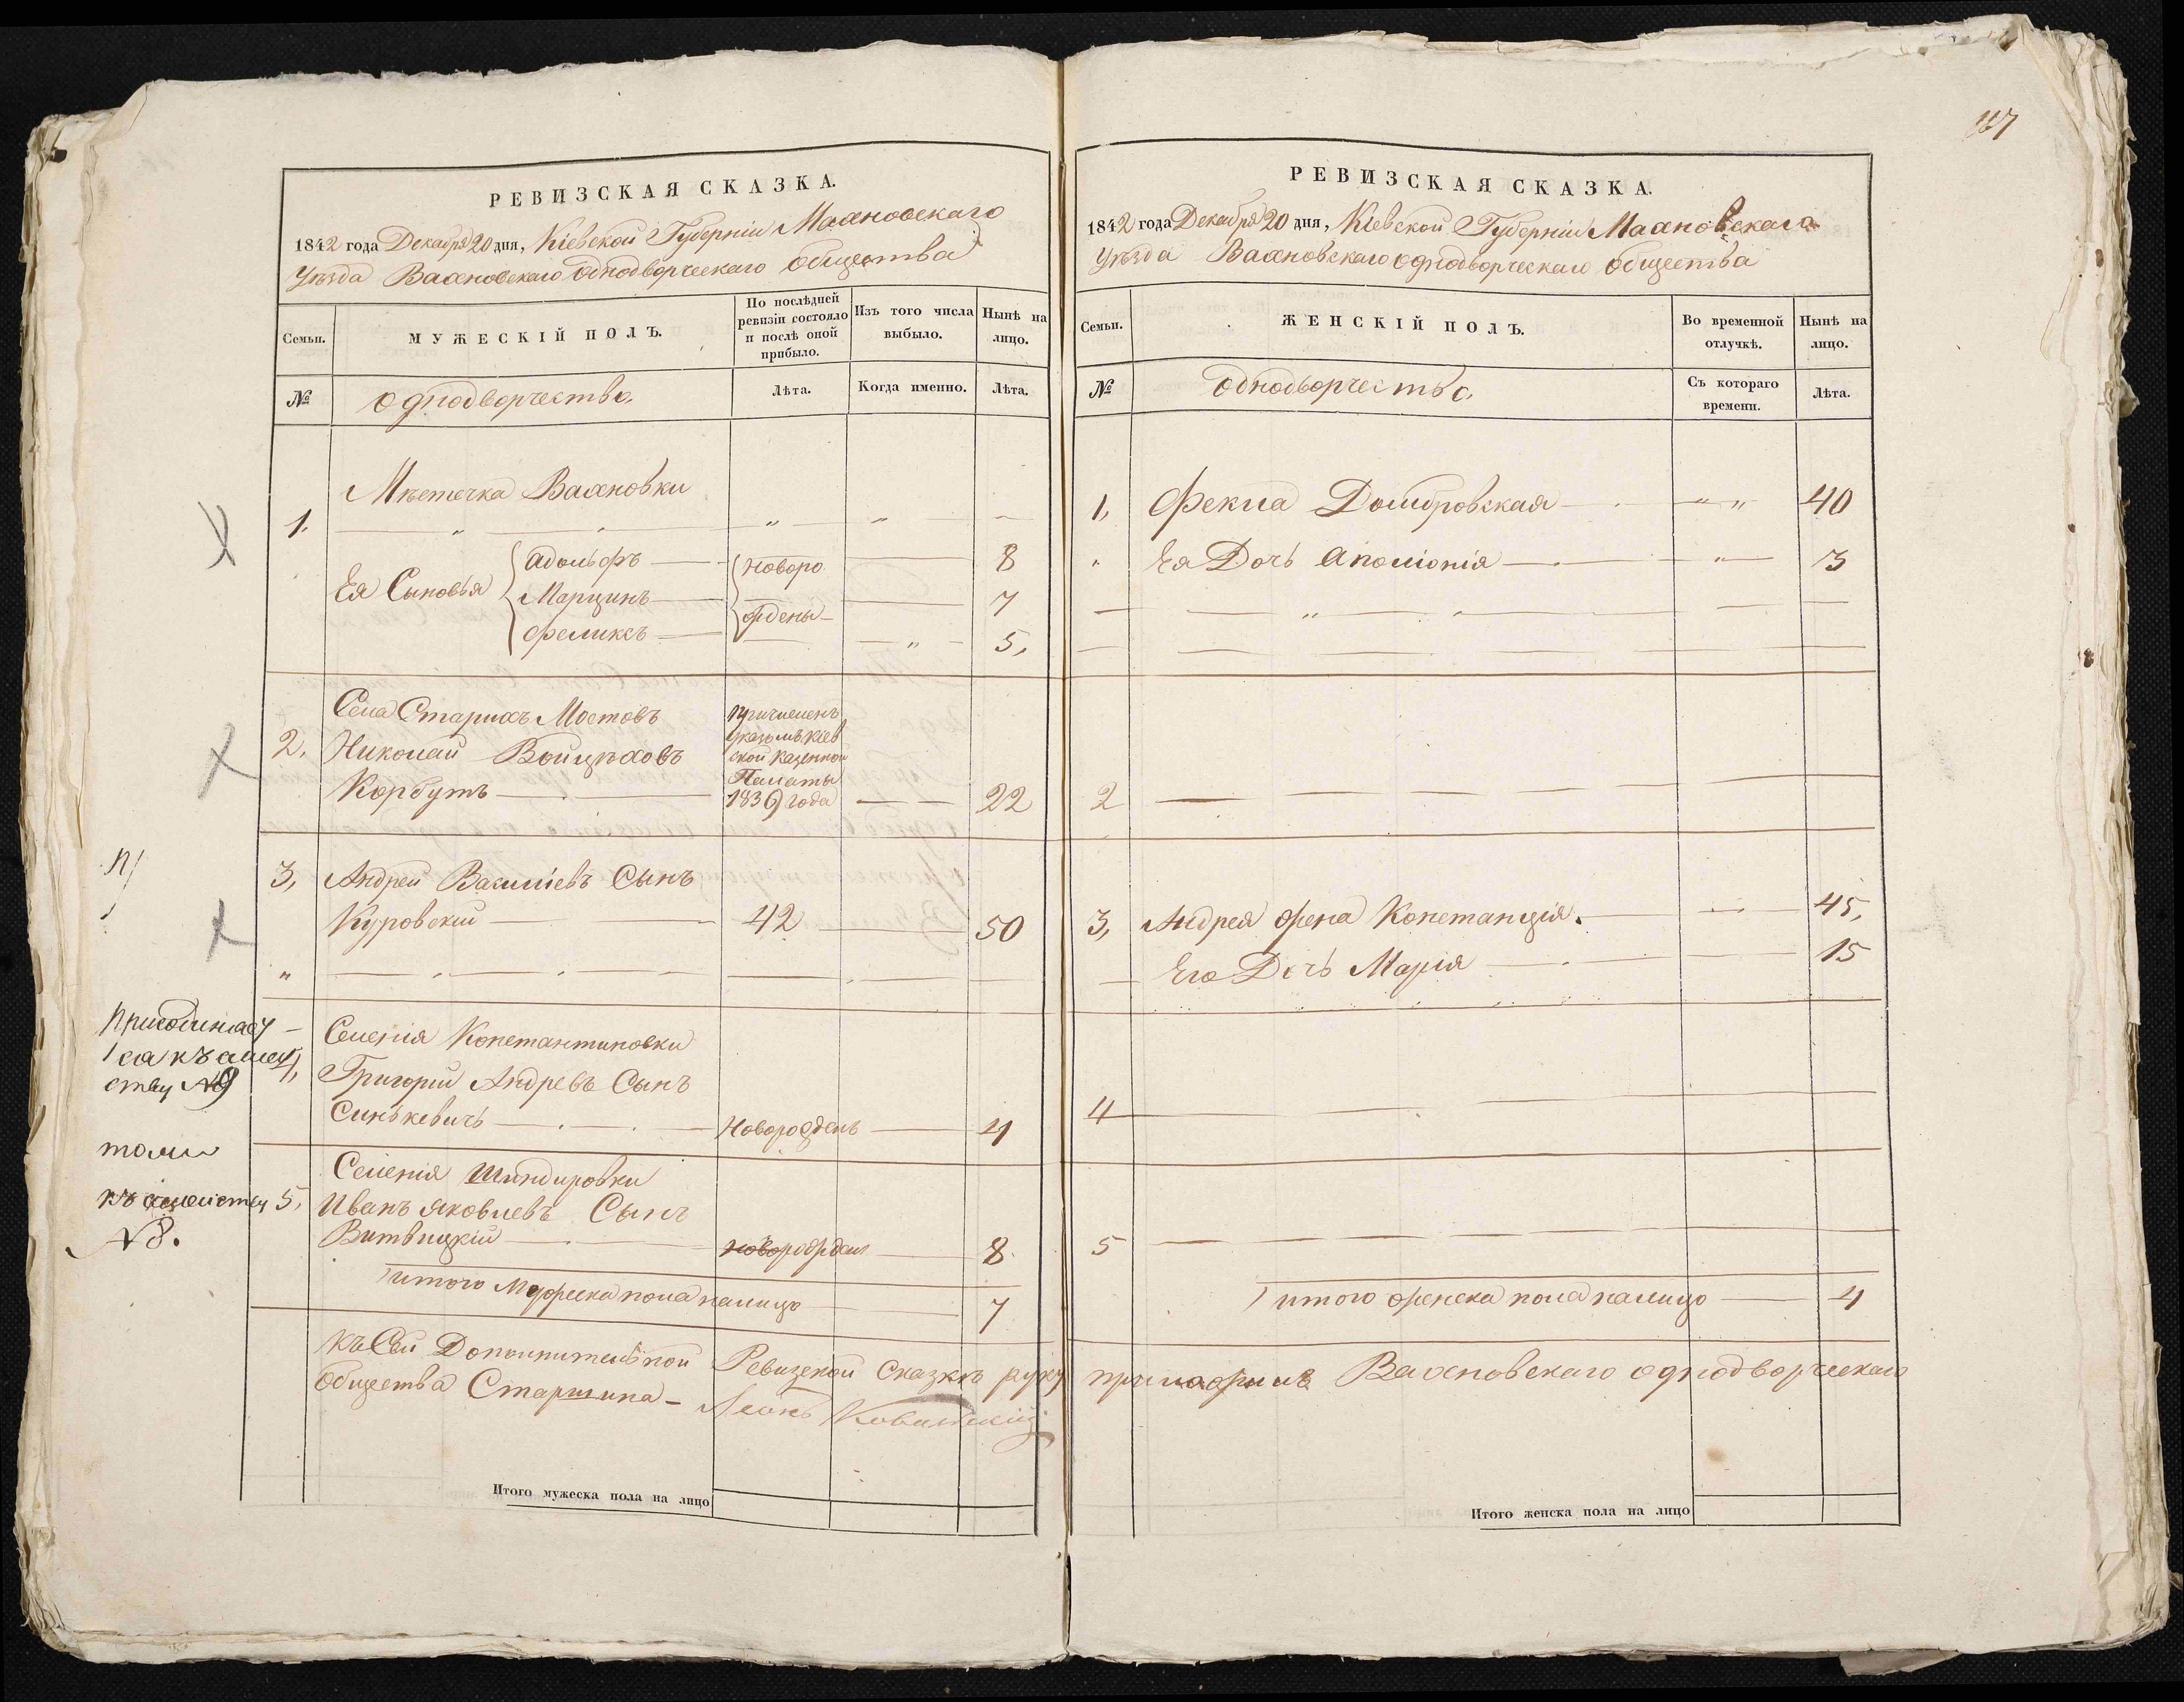 187
РЕВИЗСКАЯ СКАЗКА.
1842 года Декабря 20 дня, Кіевской Губерніи Махновскаго
Уѣзда Вахновскаго однодворческаго общества
Семьи.
МУЖЕСКІЙ ПОЛЪ.
По послѣдней
ревизіи состояло
и послѣ оной
прибыло.
Изъ того числа
выбыло.
Нынѣ на
лицо.
№
однодворчество.
Лѣта.
Когда именно.
Лѣта.
Мѣстечка Вахновки
1.
Ея Сыновья
Адольфъ
Марцинъ
Феликсъ
новоро
ждены
8
7
5,
Села Старихъ Мостовъ
2, Николай Войцѣховъ
Корбутъ
причисленъ
указомъ Кіев
ской казенной
Палаты
1839 года
22
3, Андрей Василіевъ Сынъ
Куровскій 42 50
Селенія Константиновки
4, Григорій Андревъ Сынъ
Синькевичъ Новорожденъ 4
Селенія Шиндировки
5, Иванъ Яковлевъ Сынъ
Витвицкій новорожден 8
итого Мужеска пола налицо 7
къ Сей Дополнительной Ревизской Сказкѣ руку приложилъ Вахновскаго однодворческаго
общества Старшина - Леонъ
Итого мужеска пола на лицо
ся къ
ству №9
тоже
къ семейству
№8.
РЕВИЗСКАЯ СКАЗКА.
1842 года Декабря 20 дня, Кіевской Губерніи Махновскаго
Уѣзда Вахновскаго однодворческаго общества
Семьи.
ЖЕНСКІЙ ПОЛЪ.
Во временной
отлучкѣ.
Нынѣ на
лицо.
№
однодворчество.
Съ котораго
времени.
Лѣта.
1, Фекла Домбровская 40
Ея Дочь Аполіонія 3
2
3, Андрея жена Констанція. 45,
Его Дочь Марія 15
4
5
итого женска пола налицо 4
Итого женска пола на лицо